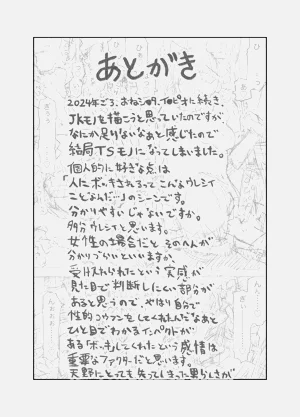 あとがき
2024年ごろ、おねショタ、イロピオに続き、
JKモノを描こうと思っていたのですが
なにか足りないなぁと感じたので
結局TSモノになってしまいました。
個人的に好きな点は
「人にボッキされるって こんなウレシイ
ことなんだ…」のシーンです。
分かりやすいじゃないですか。
多分ウレシイと思います。
女性の場合だと そのへんが
分かりづらいといいますか、
受け入れられたという 実感が
見た目で判断しにくい部分が
あると思うので、やはり自分で
性的コウフンをしてくれんだなぁと
ひと目でわかるインパクトが
ある「ボッキしてくれたという感情は
重要なファクターだと思います。
天野にとっても 失ってしまった男らしさが